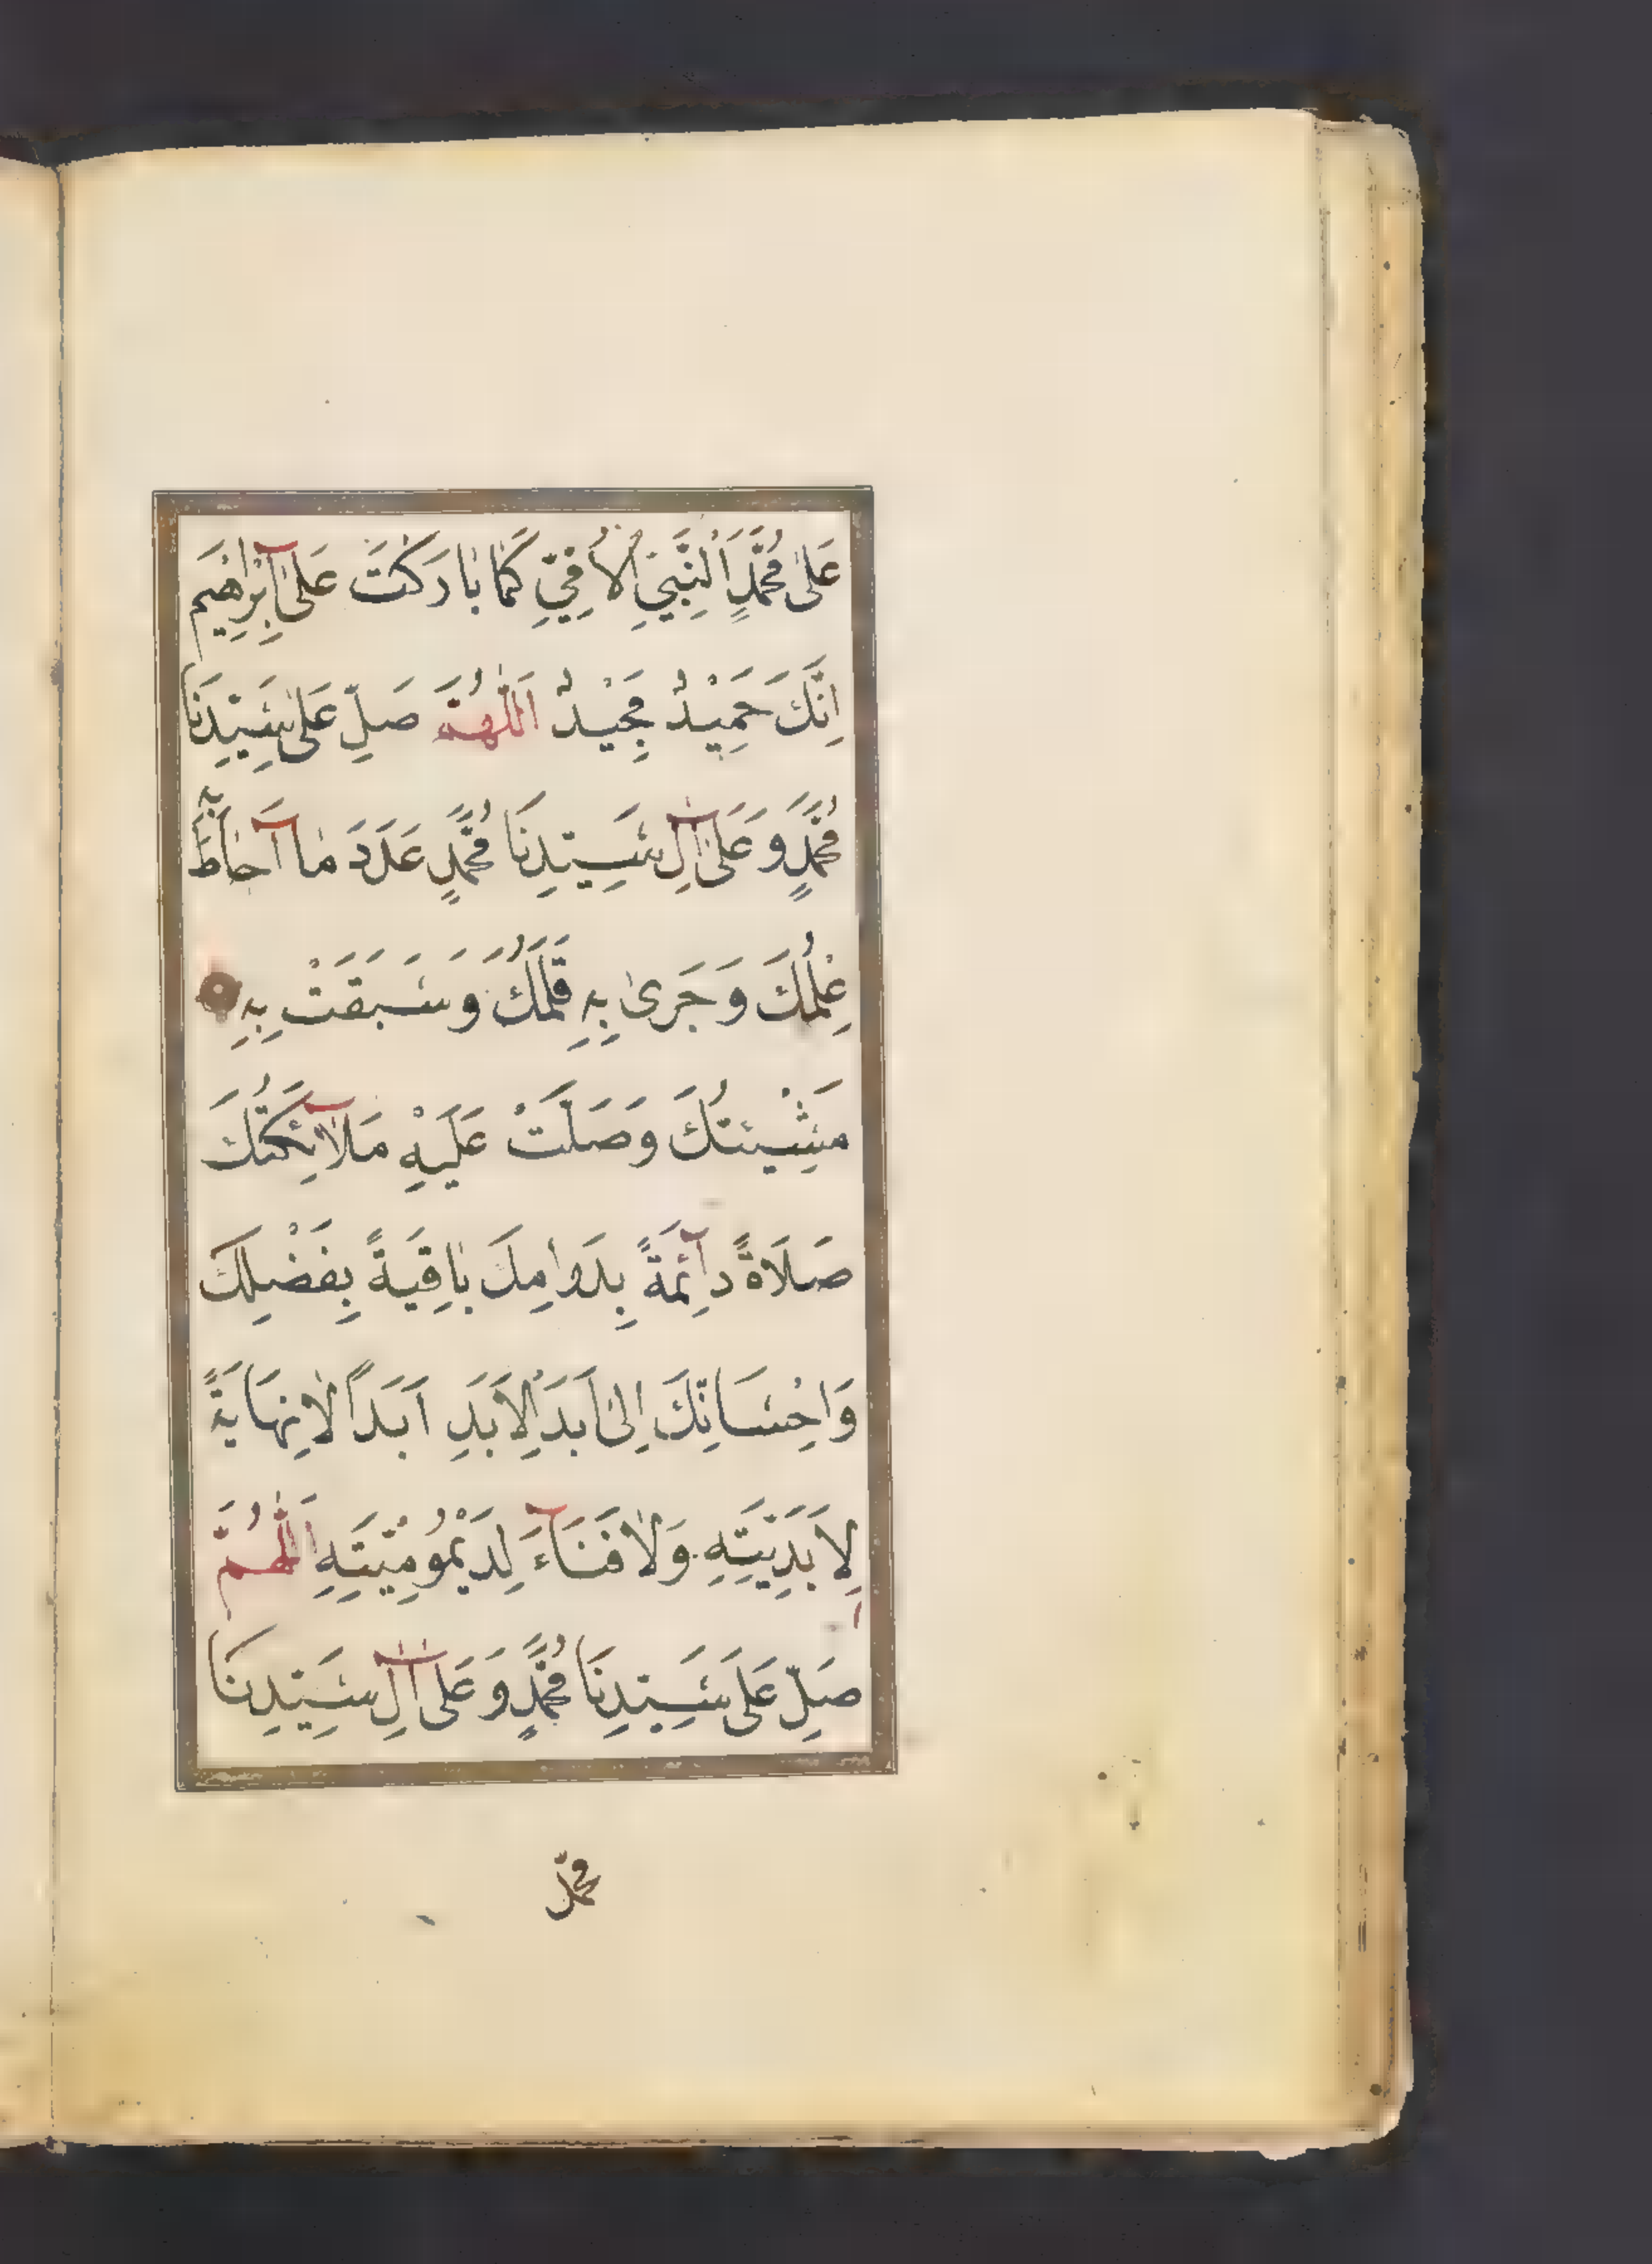 عَلىٰ مُحَمَّدٍ اَلنَّبِيِّ الْاُمِّيِّ كَمَا بَارَكْتَ عَلىٰٓ اِبْرٰهِيمَ
اِنَّكَ حَمِيْدٌ مَجِيْدٌ اَللّٰهُمَّ صَلِّ عَلىٰ سَيِّدِنَا
مُحَمَّدٍ وَعَلىٰٓ اٰلِ سَيِّدِنَا مُحَمَّدٍ عَدَدَ مَآ اَحَاطَ بِهِ
عِلْمُكَ وَجَرىٰ بِهِ قَلَمُكَ وَسَبَقَتْ بِهِ
مَشْيِئَتُكَ وَصَلَّتْ عَلَيْهِ مَلَآئِكَتُكَ
صَلَاةً دَآئِمَةً بِدَوَامِكَ بَاقِيَةً بِفَضْلِكَ
وَاِحْسَانِكَ اِلىٰ اَبَدِ الْاَبَدِ اَبَدًا لَا نِهَايَةَ
لِاَبَدِيَّتِهِ وَلَا فَنَآءَ لِدَيْمُومِيَّتِهِ اَللّٰهُمَّ
صَلِّ عَلىَ سَيِّدِنَا مُحَمَّدٍ وَعَلىٰٓ اٰلِ سَيِّدِنَا
محمّد